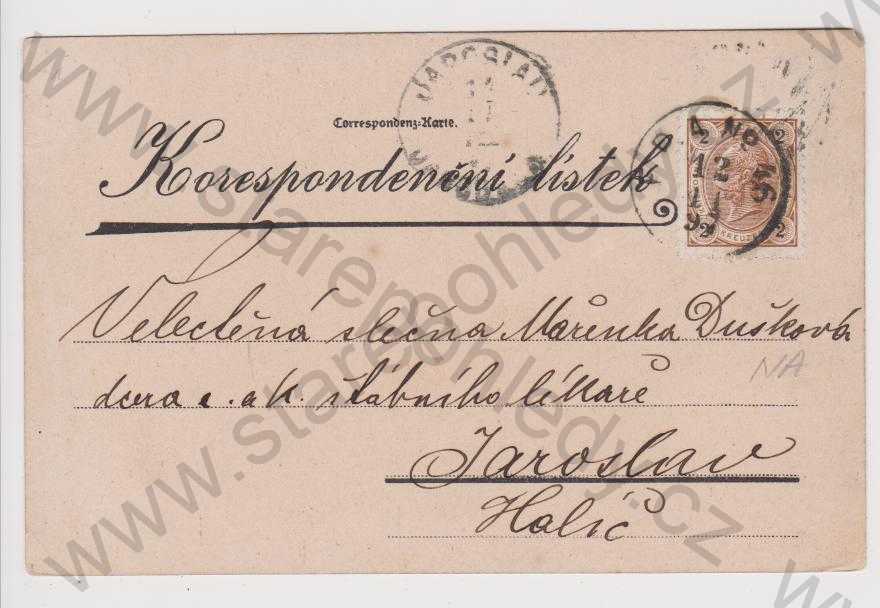 Correspondenz-Karte.
Korespondenční lístek
JAROSLAU
12
2 2
2 KREUZER 2
46
Velectěná slečna Mařenka Dušková
dcera c. a k. štábního lékaře
NA
Jaroslav
Halič
www.starepohledy.cz